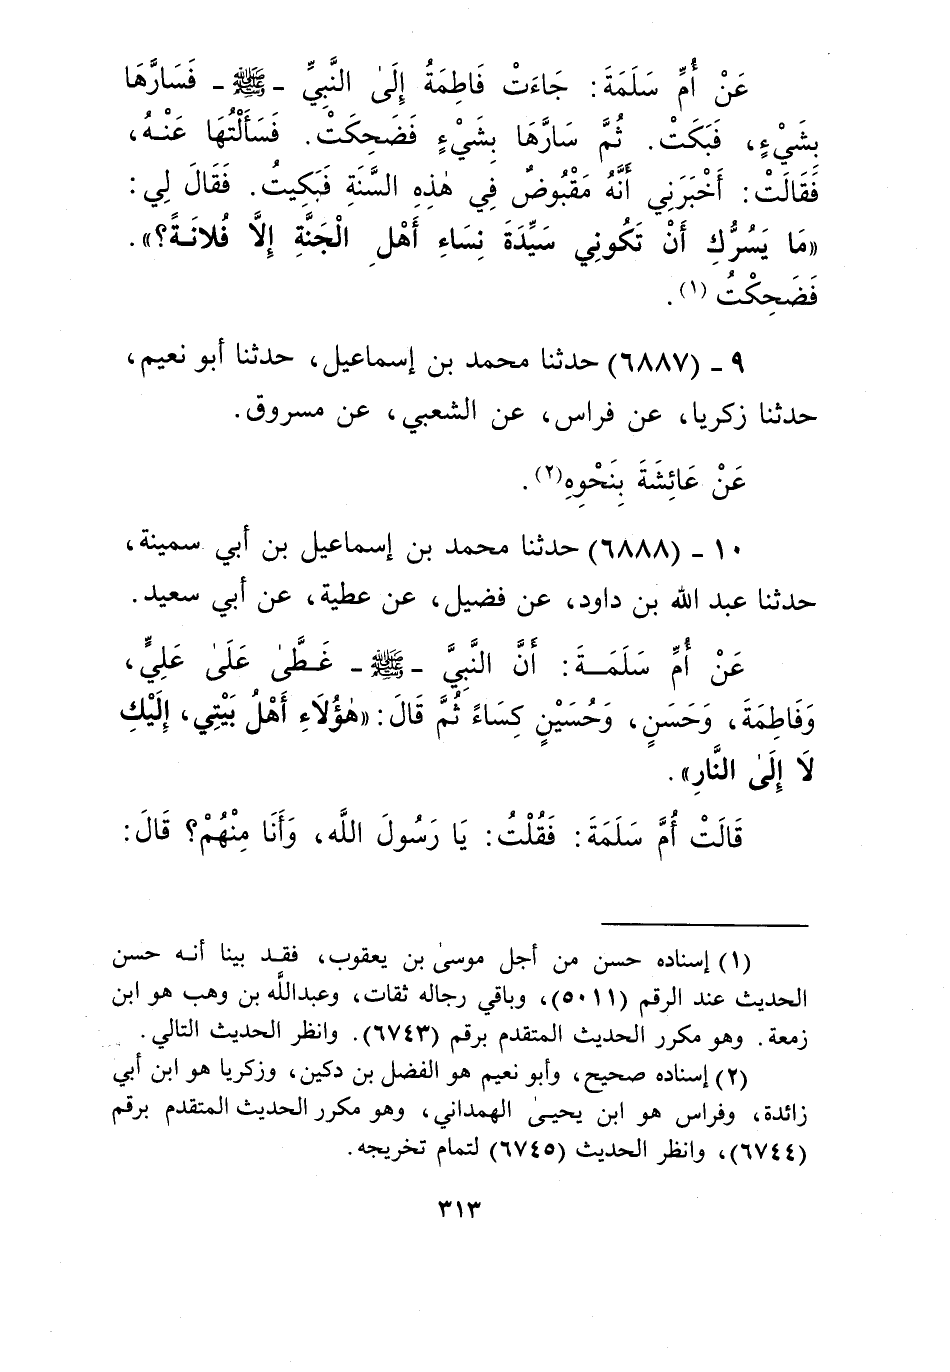 عَنْ أُمِّ سَلَمَةَ: جَاءَتْ فَاطِمَةُ إِلَىٰ النَّبِيِّ - ﷺ - فَسَارَّهَا
بِشَيْءٍ، فَبَكَتْ. ثُمَّ سَارَّهَا بِشَيْءٍ فَضَحِكَتْ. فَسَأَلْتُهَا عَنْهُ،
فَقَالَتْ: أَخْبَرَنِي أَنَّهُ مَقْبُوضٌ فِي هٰذِهِ السَّنَةِ فَبَكِيتُ. فَقَالَ لِي:
«مَا يَسُرُّكِ أَنْ تَكُونِي سَيِّدَةَ نِسَاءِ أَهْلِ الْجَنَّةِ إِلَّا فُلانَةً؟».
فَضَحِكْتُ (١).
٩ - (٦٨٨٧) حدثنا محمد بن إسماعيل، حدثنا أبو نعيم،
حدثنا زكريا، عن فراس، عن الشعبي، عن مسروق.
عَنْ عَائِشَةَ بِنَحْوِهِ (٢).
١٠ - (٦٨٨٨) حدثنا محمد بن إسماعيل بن أبي سمينة،
حدثنا عبد الله بن داود، عن فضيل، عن عطية، عن أبي سعيد.
عَنْ أُمِّ سَلَمَةَ: أَنَّ النَّبِيَّ - ﷺ - غَطَّىٰ عَلَىٰ عَلِيٍّ،
وَفَاطِمَةَ، وَحَسَنٍ، وَحُسَيْنٍ كِسَاءً ثُمَّ قَالَ: «هٰؤُلَاءِ أَهْلُ بَيْتِي، إِلَيْكِ
لَا إِلَىٰ النَّارِ».
قَالَتْ أُمُّ سَلَمَةَ: فَقُلْتُ: يَا رَسُولَ اللَّه، وَأَنَا مِنْهُمْ؟ قَالَ:
(١) إسناده حسن من أجل موسىٰ بن يعقوب، فقد بينا أنه حسن
الحديث عند الرقم (٥٠١١)، وباقي رجاله ثقات، وعبدالله بن وهب هو ابن
زمعة. وهو مكرر الحديث المتقدم برقم (٦٧٤٣). وانظر الحديث التالي.
(٢) إسناده صحيح، وأبو نعيم هو الفضل بن دكين، وزكريا هو ابن أبي
زائدة، وفراس هو ابن يحيىٰ الهمداني، وهو مكرر الحديث المتقدم برقم
(٦٧٤٤)، وانظر الحديث (٦٧٤٥) لتمام تخريجه.
٣١٣